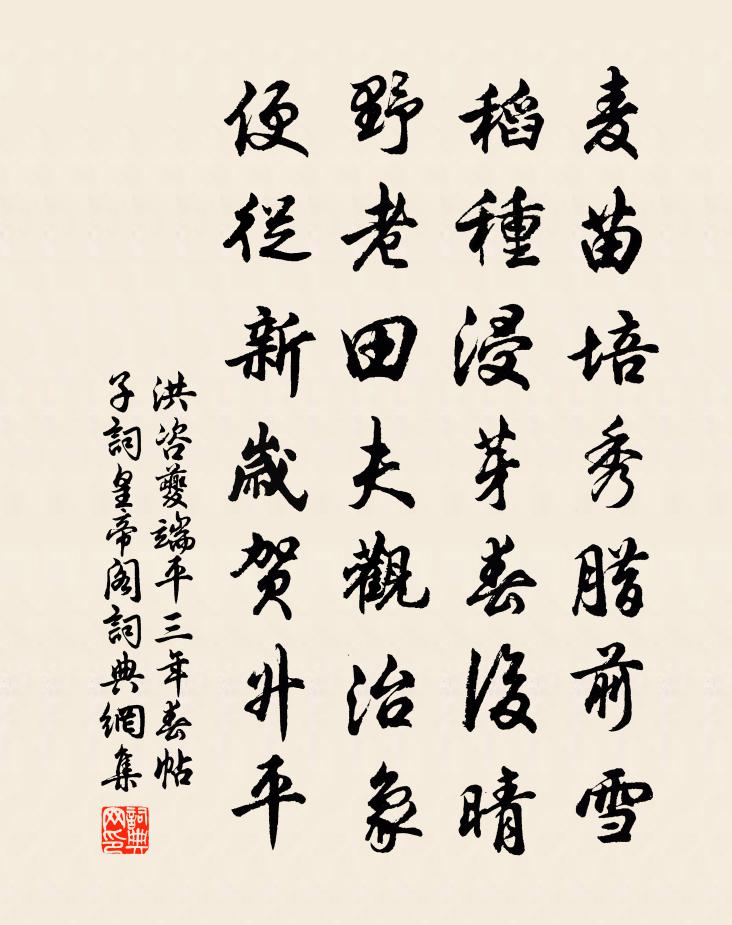 麦苗培秀腊前雪
稻種浸芽春後晴
野老田夫觀治象
便從新歲賀升平
洪咨夔端平三年春帖
子詞皇帝阁詞典網集
詞典
网印